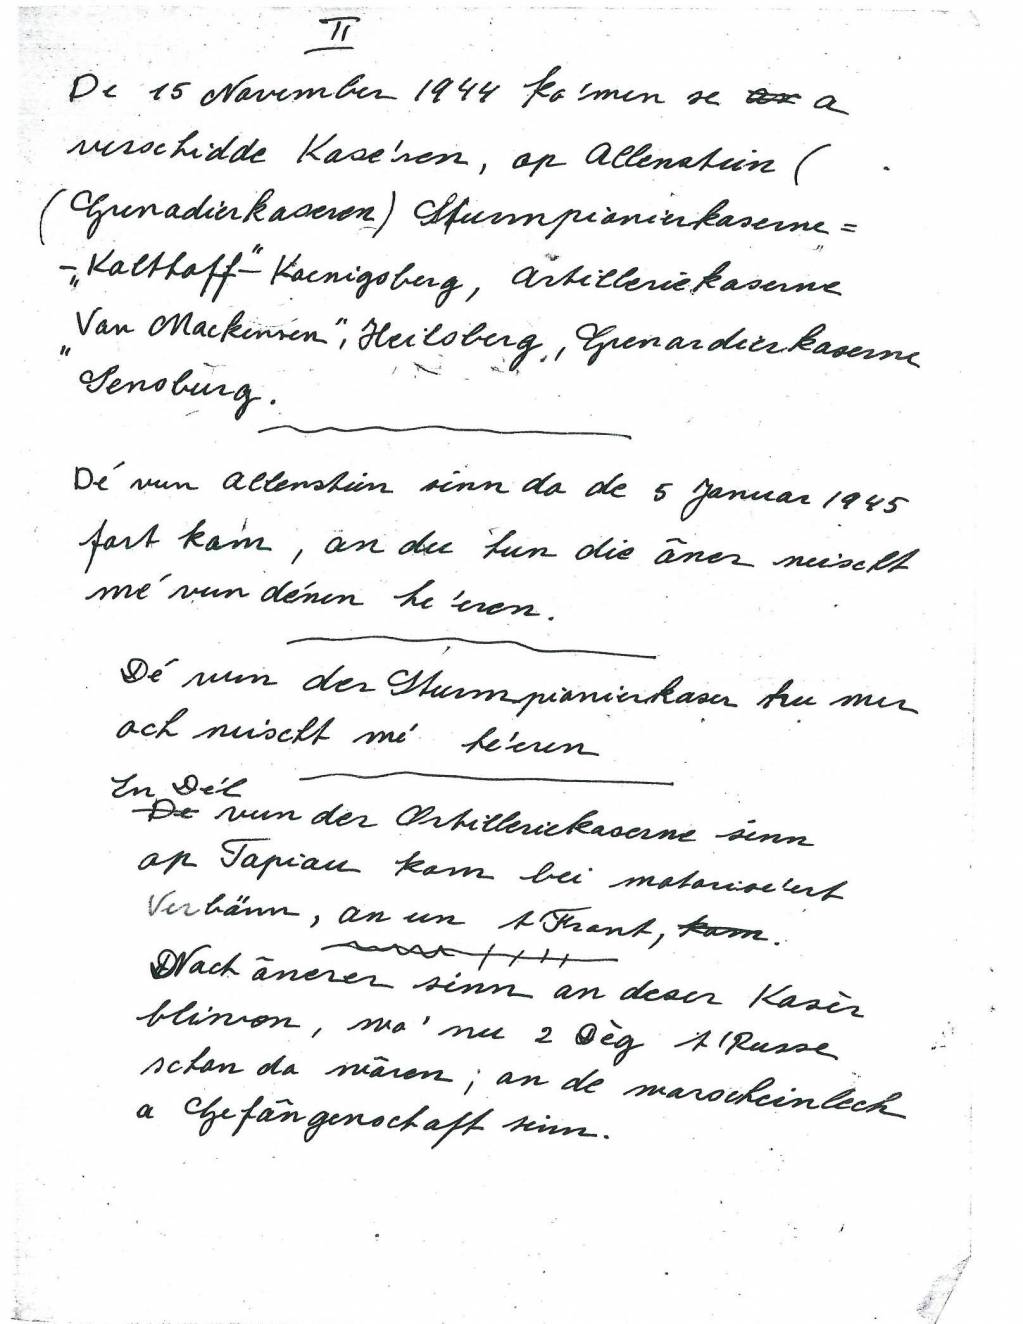 II
De 15 November 1944 ko'men se an a
verschidde Kase'ren, op Allenstein (
(Grenadierkaseren) Sturmpionierkaserne =
-„Kalthoff"- Koenigsberg, Artilleriekaserne
„Van Mackensen", Heilsberg, Grenardierkaserne
Sensburg.
Dé vun Allenstein sinn do de 5 Januar 1945
fort kom, an du hun die âner neischt
mé vun dénen he'eren.
Dé vun der Sturmpionierkaser hu mer
och neischt mé he'eren
En Dél
De vun der Artilleriekaserne sinn
op Tapiau kom bei motorise'ert
Verbänn, an un t Front, kom.
Nach ânerer sinn an deser Kasèr
bliwen, wo' nu 2 Dèg t'Russe
schon do wâren, an de warscheinlech
a Gefângenschaft sinn.